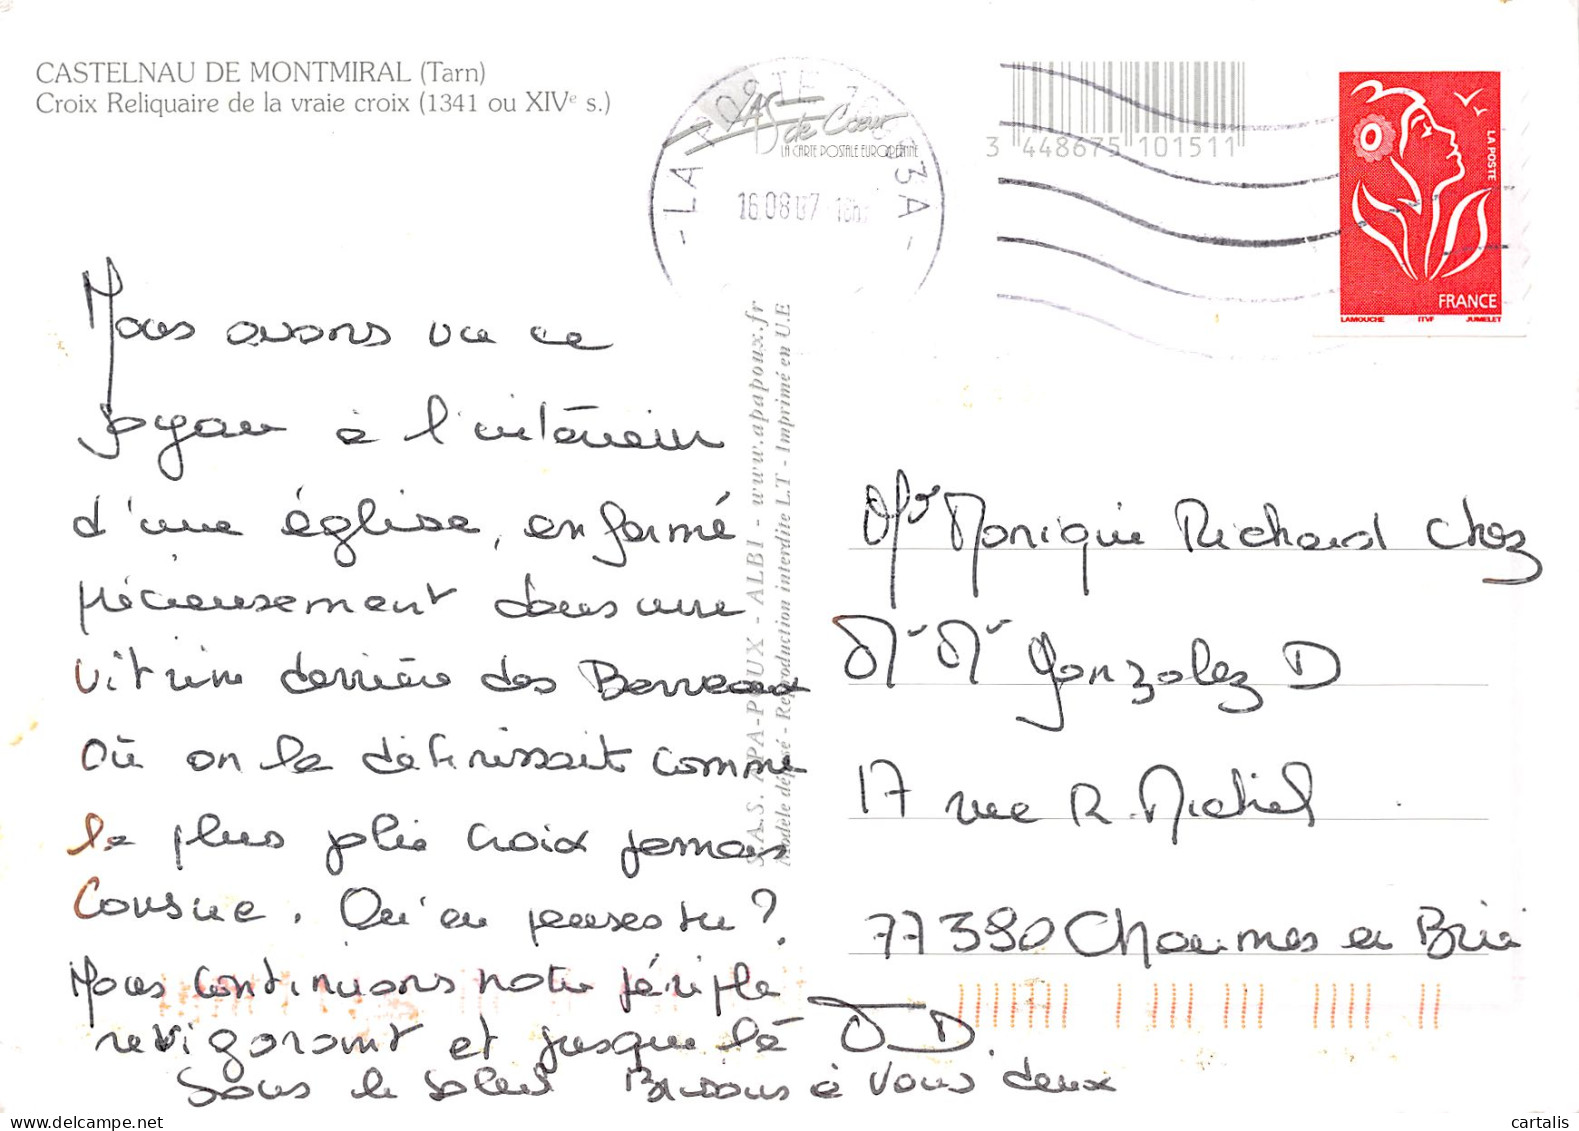 CASTELNAU DE MONTMIRAL (Tarn)
Croix Reliquaire de la vraie croix (1341 ou XIVe s.)
AS de Cœur
LA CARTE POSTALE EUROPÉENNE
- LA POSTE 33A -
16.08.07 18h
3 448675 101511
LA POSTE
FRANCE
LAMOUCHE ITVF JUMELET
Nous avons vu ce
joyau à l'intérieur
d'une église, enfermé
précieusement dans une
vitrine derrière des Barreaux
Où on la définissait comme
la plus jolie croix jamais
Connue. Qu'en penses tu ?
Nous continuons notre périple
revigorant et jusque là
Sous le soleil Bisous à Vous deux
J D.
S.A.S. APA-POUX - ALBI - www.apapoux.fr
Modèle déposé - Reproduction interdite L.T - Imprimé en U.E
Monique Richard chez
Mr Mr Gonzalez D
17 rue R. Michel
77390 Chaumes en Brie
cartalis
www.delcampe.net